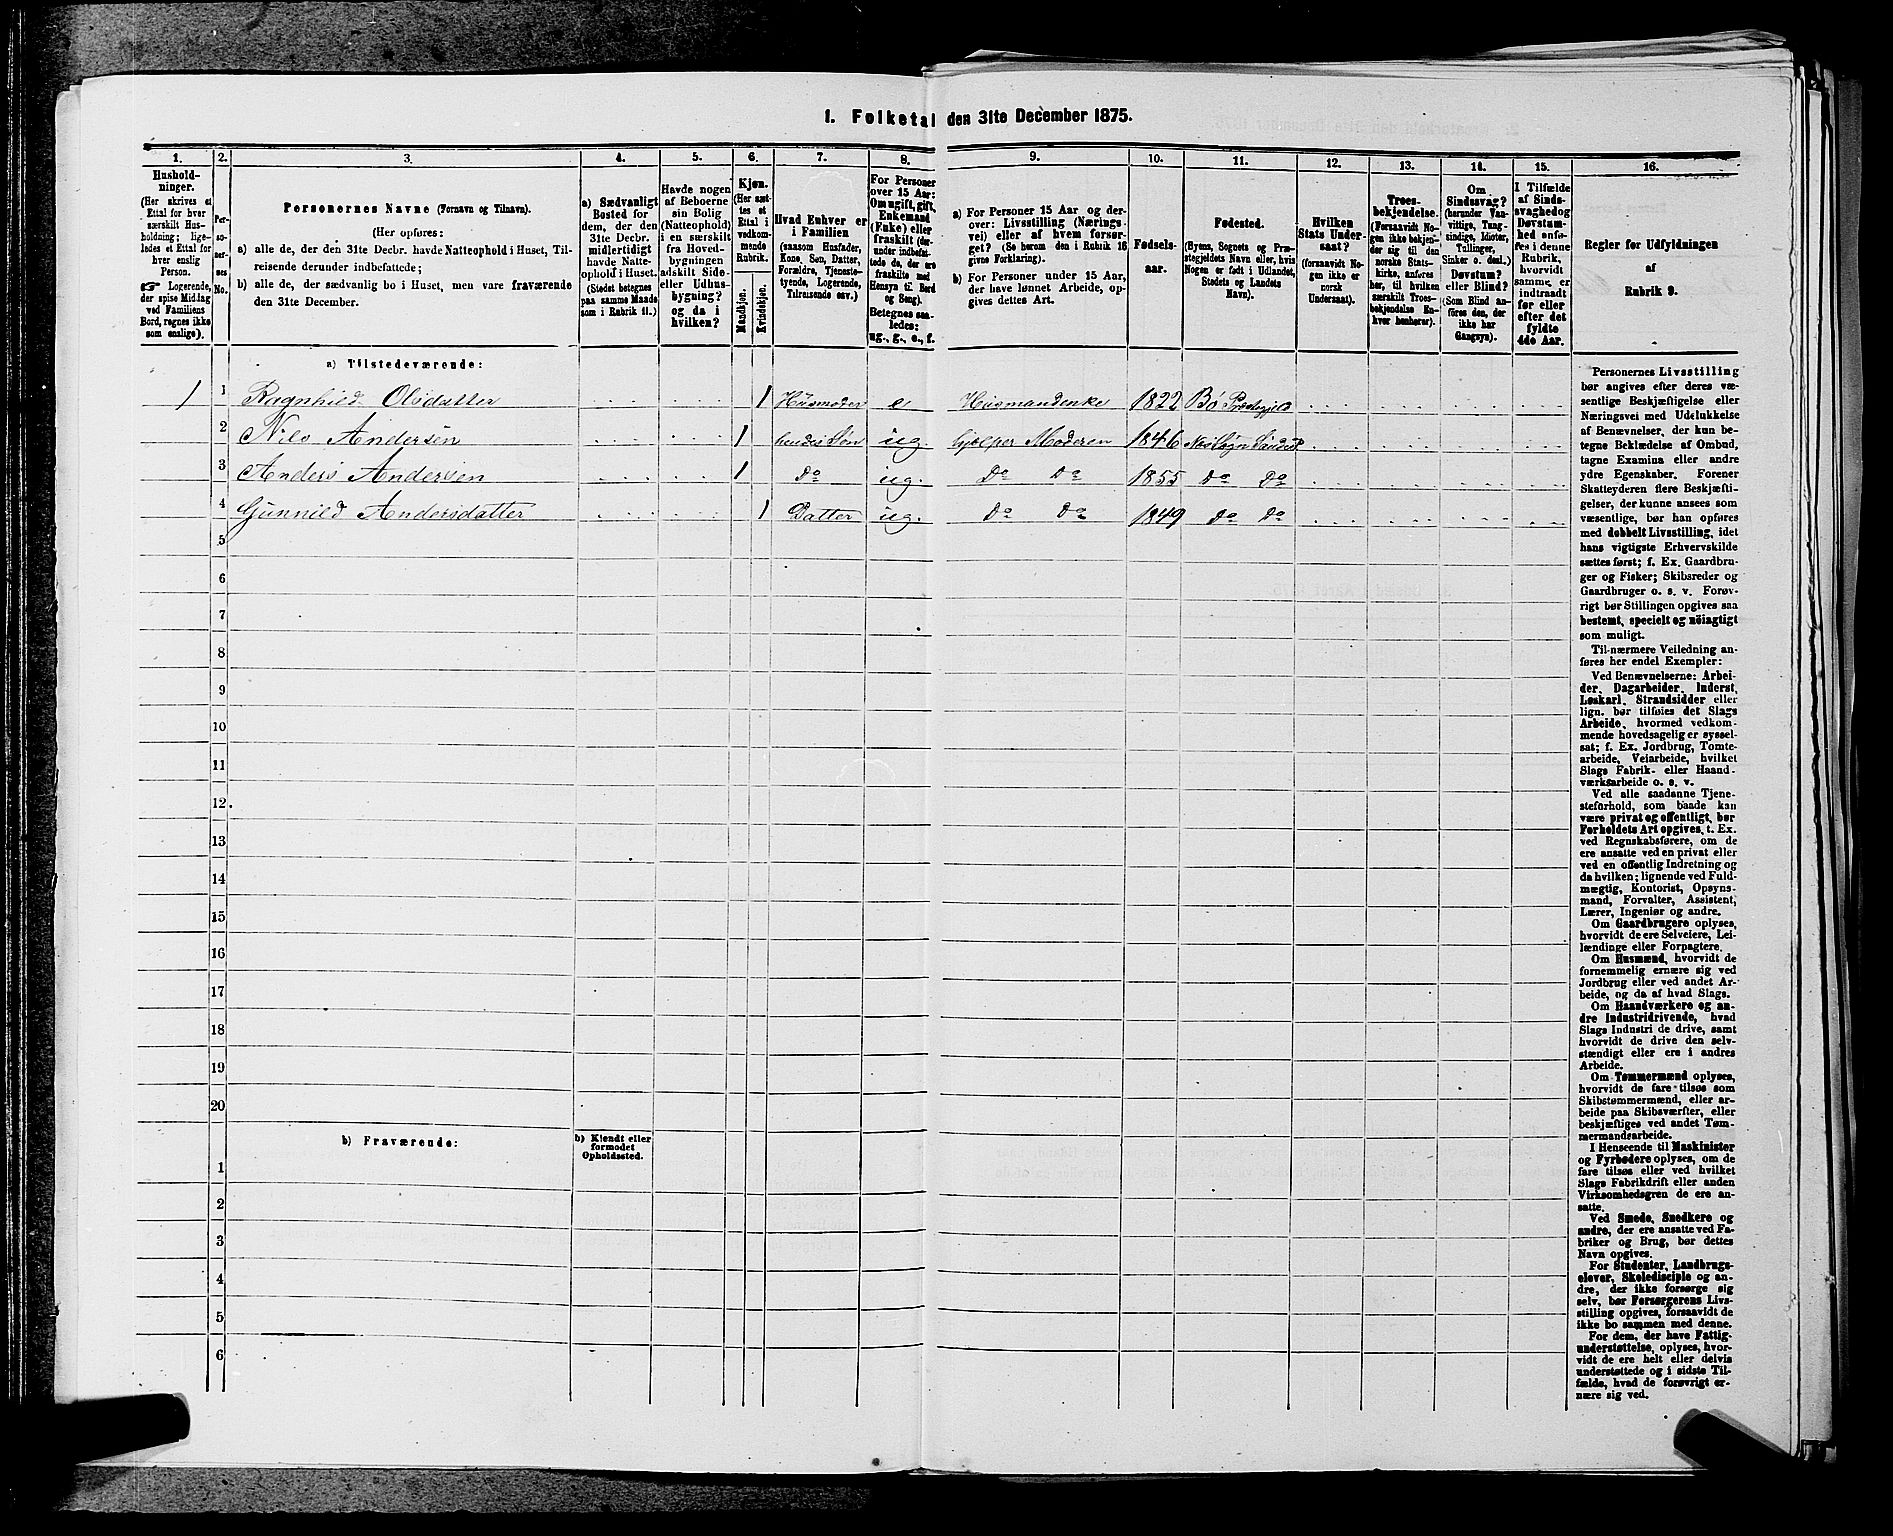 1. Folketal den 31te December 1875.
1.
2.
3.
4.
5.
6.
7.
8.
9.
10.
11.
12.
13.
14.
15.
16.
Hushold-
ninger.
(Her skrives et
Ettal for hver
særskilt Hus-
holdning; lige-
ledes et Ettal for
hver enslig
Person.
☞ Logerende,
der spise Middag
ved Familiens
Bord, regnes ikke
som enslige).
Per-
so-
ner-
nes
No.
Personernes Navne (Fornavn og Tilnavn).
(Her opføres:
a) alle de, der den 31te Decbr. havde Natteophold i Huset, Til-
reisende derunder indbefattede;
b) alle de, der sædvanlig bo i Huset, men vare fraværende
den 31te December.
a) Sædvanligt
Bosted for
dem, der den
31te Decbr.
midlertidigt
havde Natte-
ophold i Huset.
(Stedet betegnes
paa samme Maade
som i Rubrik 11.)
Havde nogen
af Beboerne
sin Bolig
(Natteophold)
i en særskilt
fra Hoved-
bygningen
adskilt Side-
eller Udhus-
bygning?
og da i
hvilken?
Kjøn.
(Her sæt-
tes et
Ettal i
vedkom-
mende
Rubrik.
Mandkjøn.
Kvindekjøn.
Hvad Enhver er
i Familien
(saasom Husfader,
Kone, Søn, Datter,
Forældre, Tjeneste-
tyende, Logerende,
Tilreisende osv.)
For Personer
over 15 Aar:
Om ugift, gift,
Enkemand
(Enke) eller
fraskilt (der-
under indbefat-
tede de, der ere
fraskilte med
Hensyn til Bord
og Seng).
Betegnes saa-
ledes:
ug., g., e., f.
a) For Personer 15 Aar og der-
over: Livsstilling (Nærings-
vei) eller af hvem forsør-
get? (Se herom den i Rubrik 16
givne Forklaring).
b) For Personer under 15 Aar,
der have lønnet Arbeide, op-
gives dettes Art.
Fødsels-
aar.
Fødested.
(Byens, Sognets og Præ-
stegjeldets Navn eller, hvis
Nogen er født i Udlandet,
Stedets og Landets
Navn).
Hvilken
Stats Under-
saat?
(forsaavidt No-
gen ikke er
norsk
Undersaat).
Troes-
bekjendelse.
(Forsaavidt No-
gen ikke bekjen-
der sig til den
norske Stats-
kirke, anføres
her, til hvilken
særskilt Troes-
bekjendelse En-
hver henhører).
Om
Sindssvag?
(herunder Van-
vittige, Tung-
sindige, Idioter,
Tullinger,
Sinker o. desl.)
Døvstum?
eller Blind?
(Som Blind an-
føres den, der
ikke har
Gangsyn).
I Tilfælde
af Sinds-
svaghed og
Døvstum-
hed anfø-
res i denne
Rubrik,
hvorvidt
samme er
indtraadt
før eller
efter det
fyldte
4de Aar.
Regler for Udfyldningen
af
Rubrik 9.
a) Tilstedeværende:
1 1 Ragnhild Olsdatter 1 Husmoder e Husmandenke 1822 Bö Præstegjeld
2 Nils Andersen 1 hendes Sön ug. hjælper Moderen 1846
3 Anders Andersen 1 Do ug. Do Do 1855 Do Do
4 Gunnild Andersdatter 1 Datter ug. Do Do 1849 Do Do
5
6
7
8
9
10
11
12.
13
14
15
16
17
18
19
20
b) Fraværende:
b) Kjendt eller
formodet
Opholdssted.
1
2
3
4
5
6
Personernes Livsstilling
bør angives efter deres væ-
sentlige Beskjæftigelse eller
Næringsvei med Udelukkelse
af Benævnelser, der kun be-
tegne Beklædelse af Ombud,
tagne Examina eller andre
ydre Egenskaber. Forener
Skatteyderen flere Beskjæfti-
gelser, der kunne ansees som
væsentlige, bør han opføres
med dobbelt Livsstilling, idet
hans vigtigste Erhvervskilde
sættes først; f. Ex. Gaardbru-
ger og Fisker; Skibsreder og
Gaardbruger o. s. v. Forøv-
rigt bør Stillingen opgives saa
bestemt, specielt og nøiagtigt
som muligt.
Til nærmere Veiledning an-
føres her endel Exempler:
Ved Benævnelserne: Arbei-
der, Dagarbeider, Inderst,
Løskarl, Strandsidder eller
lign. bør tilføies det Slags
Arbeide, hvormed vedkom-
mende hovedsagelig er syssel-
sat; f. Ex. Jordbrug, Tomte-
arbeide, Veiarbeide, hvilket
Slags Fabrik- eller Haand-
værksarbeide o. s. v.
Ved alle saadanne Tjene-
steforhold, som baade kan
være privat og offentligt, bør
Forholdets Art opgives, t. Ex.
ved Regnskabsførere, om de
ere ansatte ved en privat eller
ved en offentlig Indretning og
da hvilken; lignende ved Fuld-
mægtig, Kontorist, Opsyns-
mand, Forvalter, Assistent,
Lærer, Ingeniør og andre.
Om Gaardbrugere oplyses,
hvorvidt de ere Selveiere, Lei-
lændinge eller Forpagtere.
Om Husmænd, hvorvidt de
fornemmelig ernære sig ved
Jordbrug eller ved andet Ar-
beide, og da af hvad Slags.
Om Haandværkere og an-
dre Industridrivende, hvad
Slags Industri de drive, samt
hvorvidt de drive den selv-
stændigt eller ere i andres
Arbeide.
Om Tømmermænd oplyses,
hvorvidt de fare tilsøs som
Skibstømmermænd, eller ar-
beide paa Skibsværfter, eller
beskjæftiges ved andet Tøm-
mermandsarbeide.
I Henseende til Maskinister
og Fyrbødere oplyses, om de
fare tilsøs eller ved hvilket
Slags Fabrikdrift eller anden
Virksomhedsgren de ere an-
satte.
Ved Smede, Snedkere og
andre, der ere ansatte ved Fa-
briker og Brug, bør dettes
Navn opgives.
For Studenter, Landbrugs-
elever, Skoledisciple og an-
dre, der ikke forsørge sig
selv, bør Forsørgerens Livs-
stilling opgives, forsaavidt de
ikke bo sammen med denne.
For dem, der have Fattig-
understøttelse, oplyses, hvor-
vidt de ere helt eller delvis
understøttede og i sidste Til-
fælde, hvad de forøvrigt er-
nære sig ved.